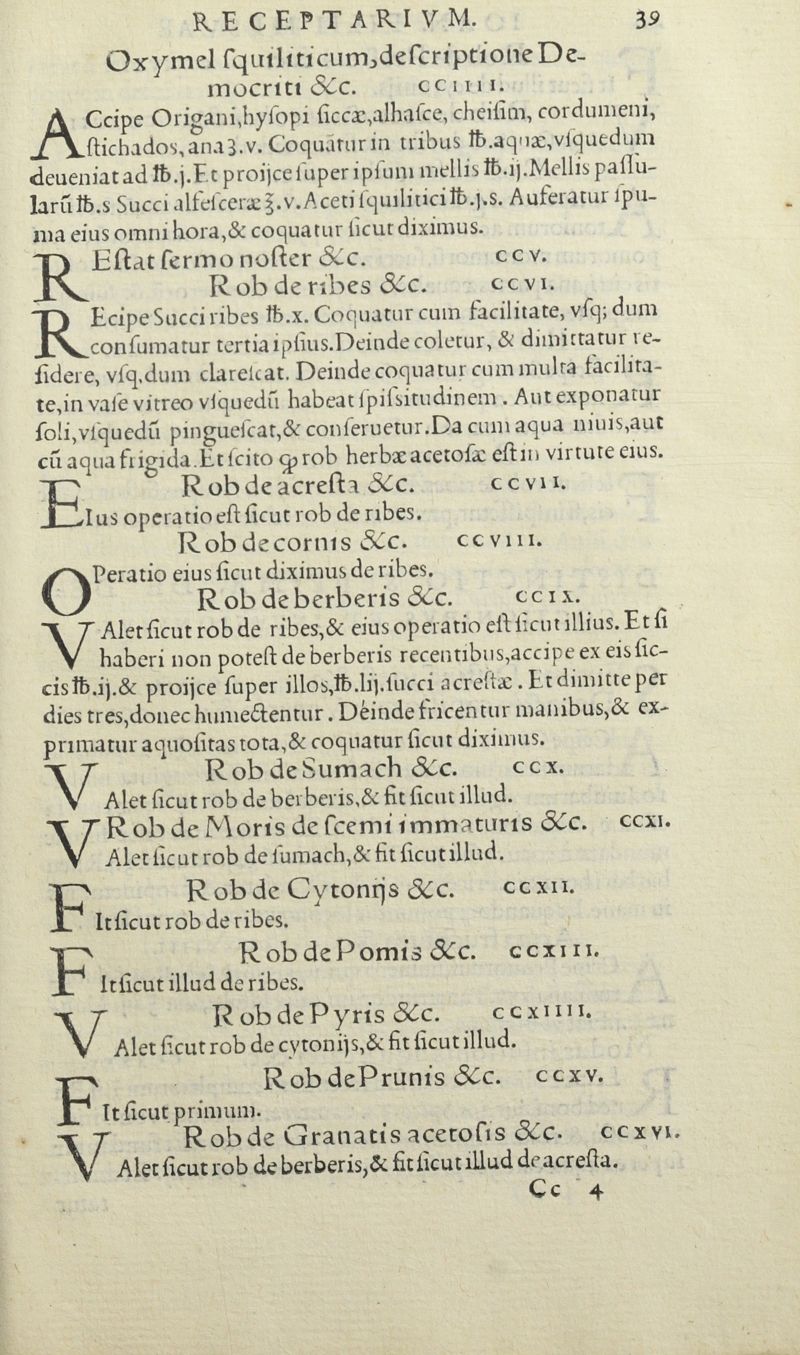 RECEPTARIVM. 39
Oxymel ſquiliticum, deſcriptione De-
mocriti &c. CCIIII.
ACcipe Origani, hyſopi ſiccæ, alhaſce, cheiſim, cordumeni,
ſtichados, ana ʒ.v. Coquãtur in tribus ℔. aquæ, vſquedum
deueniat ad ℔.j. Et proijce ſuper ipſum mellis ℔.ij. Mellis paſſu-
larũ ℔.s Succi alfeſceræ ℥.v. Aceti ſquilitici ℔.j.s. Auferatur ſpu-
ma eius omni hora, & coquatur ſicut diximus.
REſtat ſermo noſter &c. CCV.
Rob de ribes &c. CCVI.
REcipe Succi ribes ℔.x. Coquatur cum facilitate, vſq; dum
conſumatur tertia ipſius. Deinde coletur, & dimittatur re-
ſidere, vſq, dum clareſcat. Deinde coquatur cum multa facilita-
te, in vaſe vitreo vſquedũ habeat ſpiſsitudinem. Aut exponatur
ſoli, vſquedũ pingueſcat, & conſeruetur. Da cum aqua niuis, aut
cũ aqua frigida. Et ſcito ꝙ rob herbæ acetoſæ eſt in virtute eius.
Rob de acreſta &c. CCVII.
EIus operatio eſt ſicut rob de ribes.
Rob de cornis &c. CCVIII.
OPeratio eius ſicut diximus de ribes.
Rob de berberis &c. CCIX.
VAlet ſicut rob de ribes, & eius operatio eſt ſicut illius. Et ſi
haberi non poteſt de berberis recentibus, accipe ex eis ſic-
cis ℔.ij. & proijce ſuper illos, ℔.lij. ſucci acreſtæ. Et dimitte per
dies tres, donec humectentur. Deinde fricentur manibus, & ex-
primatur aquoſitas tota, & coquatur ſicut diximus.
Rob de Sumach &c. CCX.
VAlet ſicut rob de berberis, & fit ſicut illud.
Rob de Moris de ſcemi immaturis &c. CCXI.
VAlet ſicut rob de ſumach, & fit ſicut illud.
Rob de Cytonijs &c. CCXII.
FIt ſicut rob de ribes.
Rob de Pomis &c. CCXIII.
FIt ſicut illud de ribes.
Rob de Pyris &c. CCXIIII.
VAlet ſicut rob de cytonijs, & fit ſicut illud.
Rob de Prunis &c. CCXV.
FIt ſicut primum.
Rob de Granatis acetoſis &c. CCXVI.
VAlet ſicut rob de berberis, & fit ſicut illud de acreſta.
Cc 4